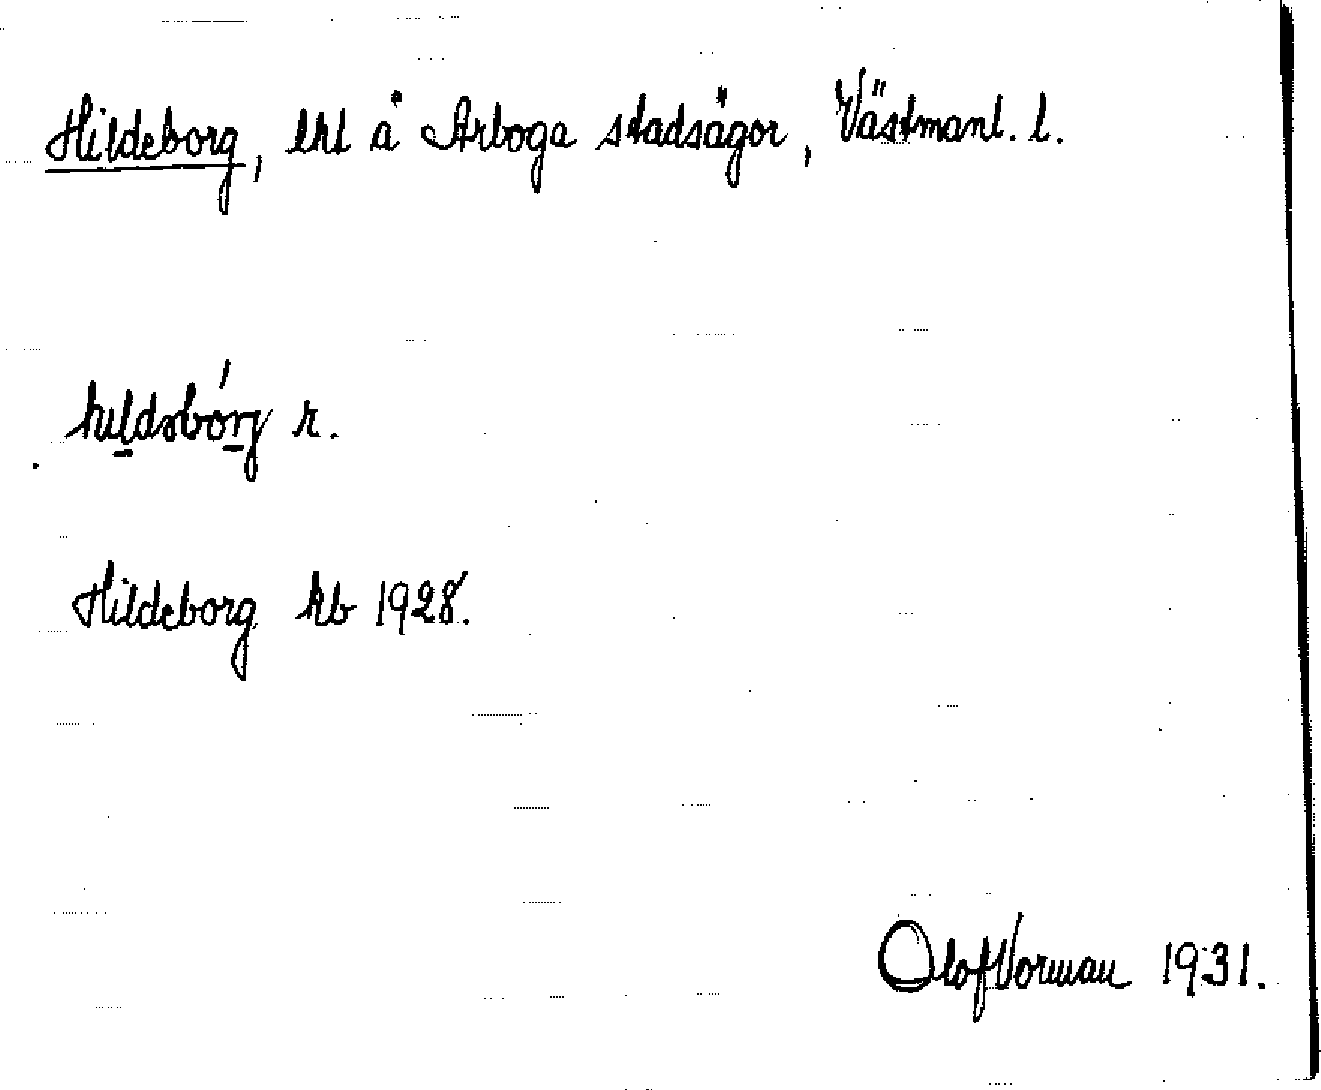 Hildeborg, lht å Arboga stadsägor, Västmanl. l.
hildsbórg r.
Hildeborg kb 1928.
Olof Vorman 1931.